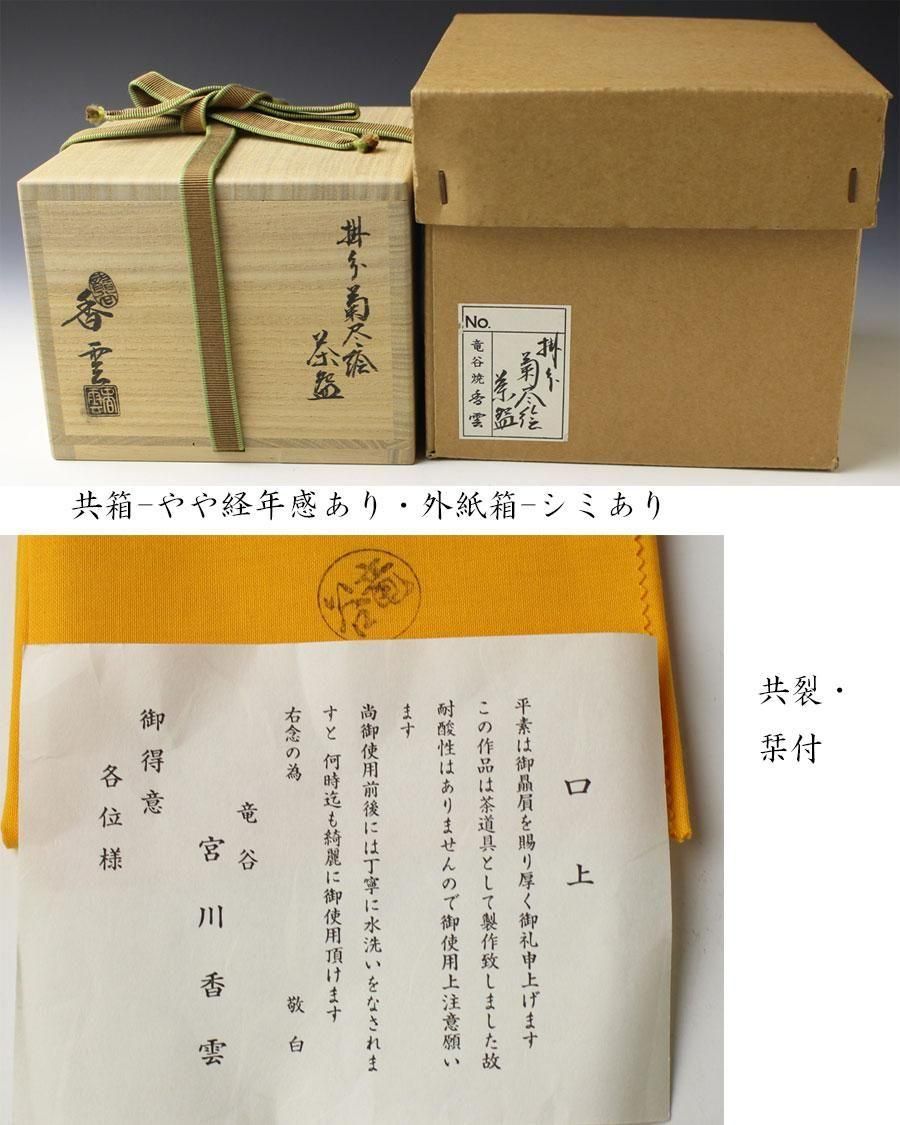 掛分菊尽絵
茶盌
香雲
香雲
No.
掛分
菊尽絵
茶盌
竜谷焼 香雲
共箱-やや経年感あり・外紙箱-シミあり
共裂・
栞付
口上
平素は御贔屓を賜り厚く御礼申上げます
この作品は茶道具として製作致しました故
耐酸性はありませんので御使用上注意願い
ます
尚御使用前後には丁寧に水洗いをなされま
すと 何時迄も綺麗に御使用頂けます
右念の為 敬白
竜谷
宮川香雲
御得意
各位様